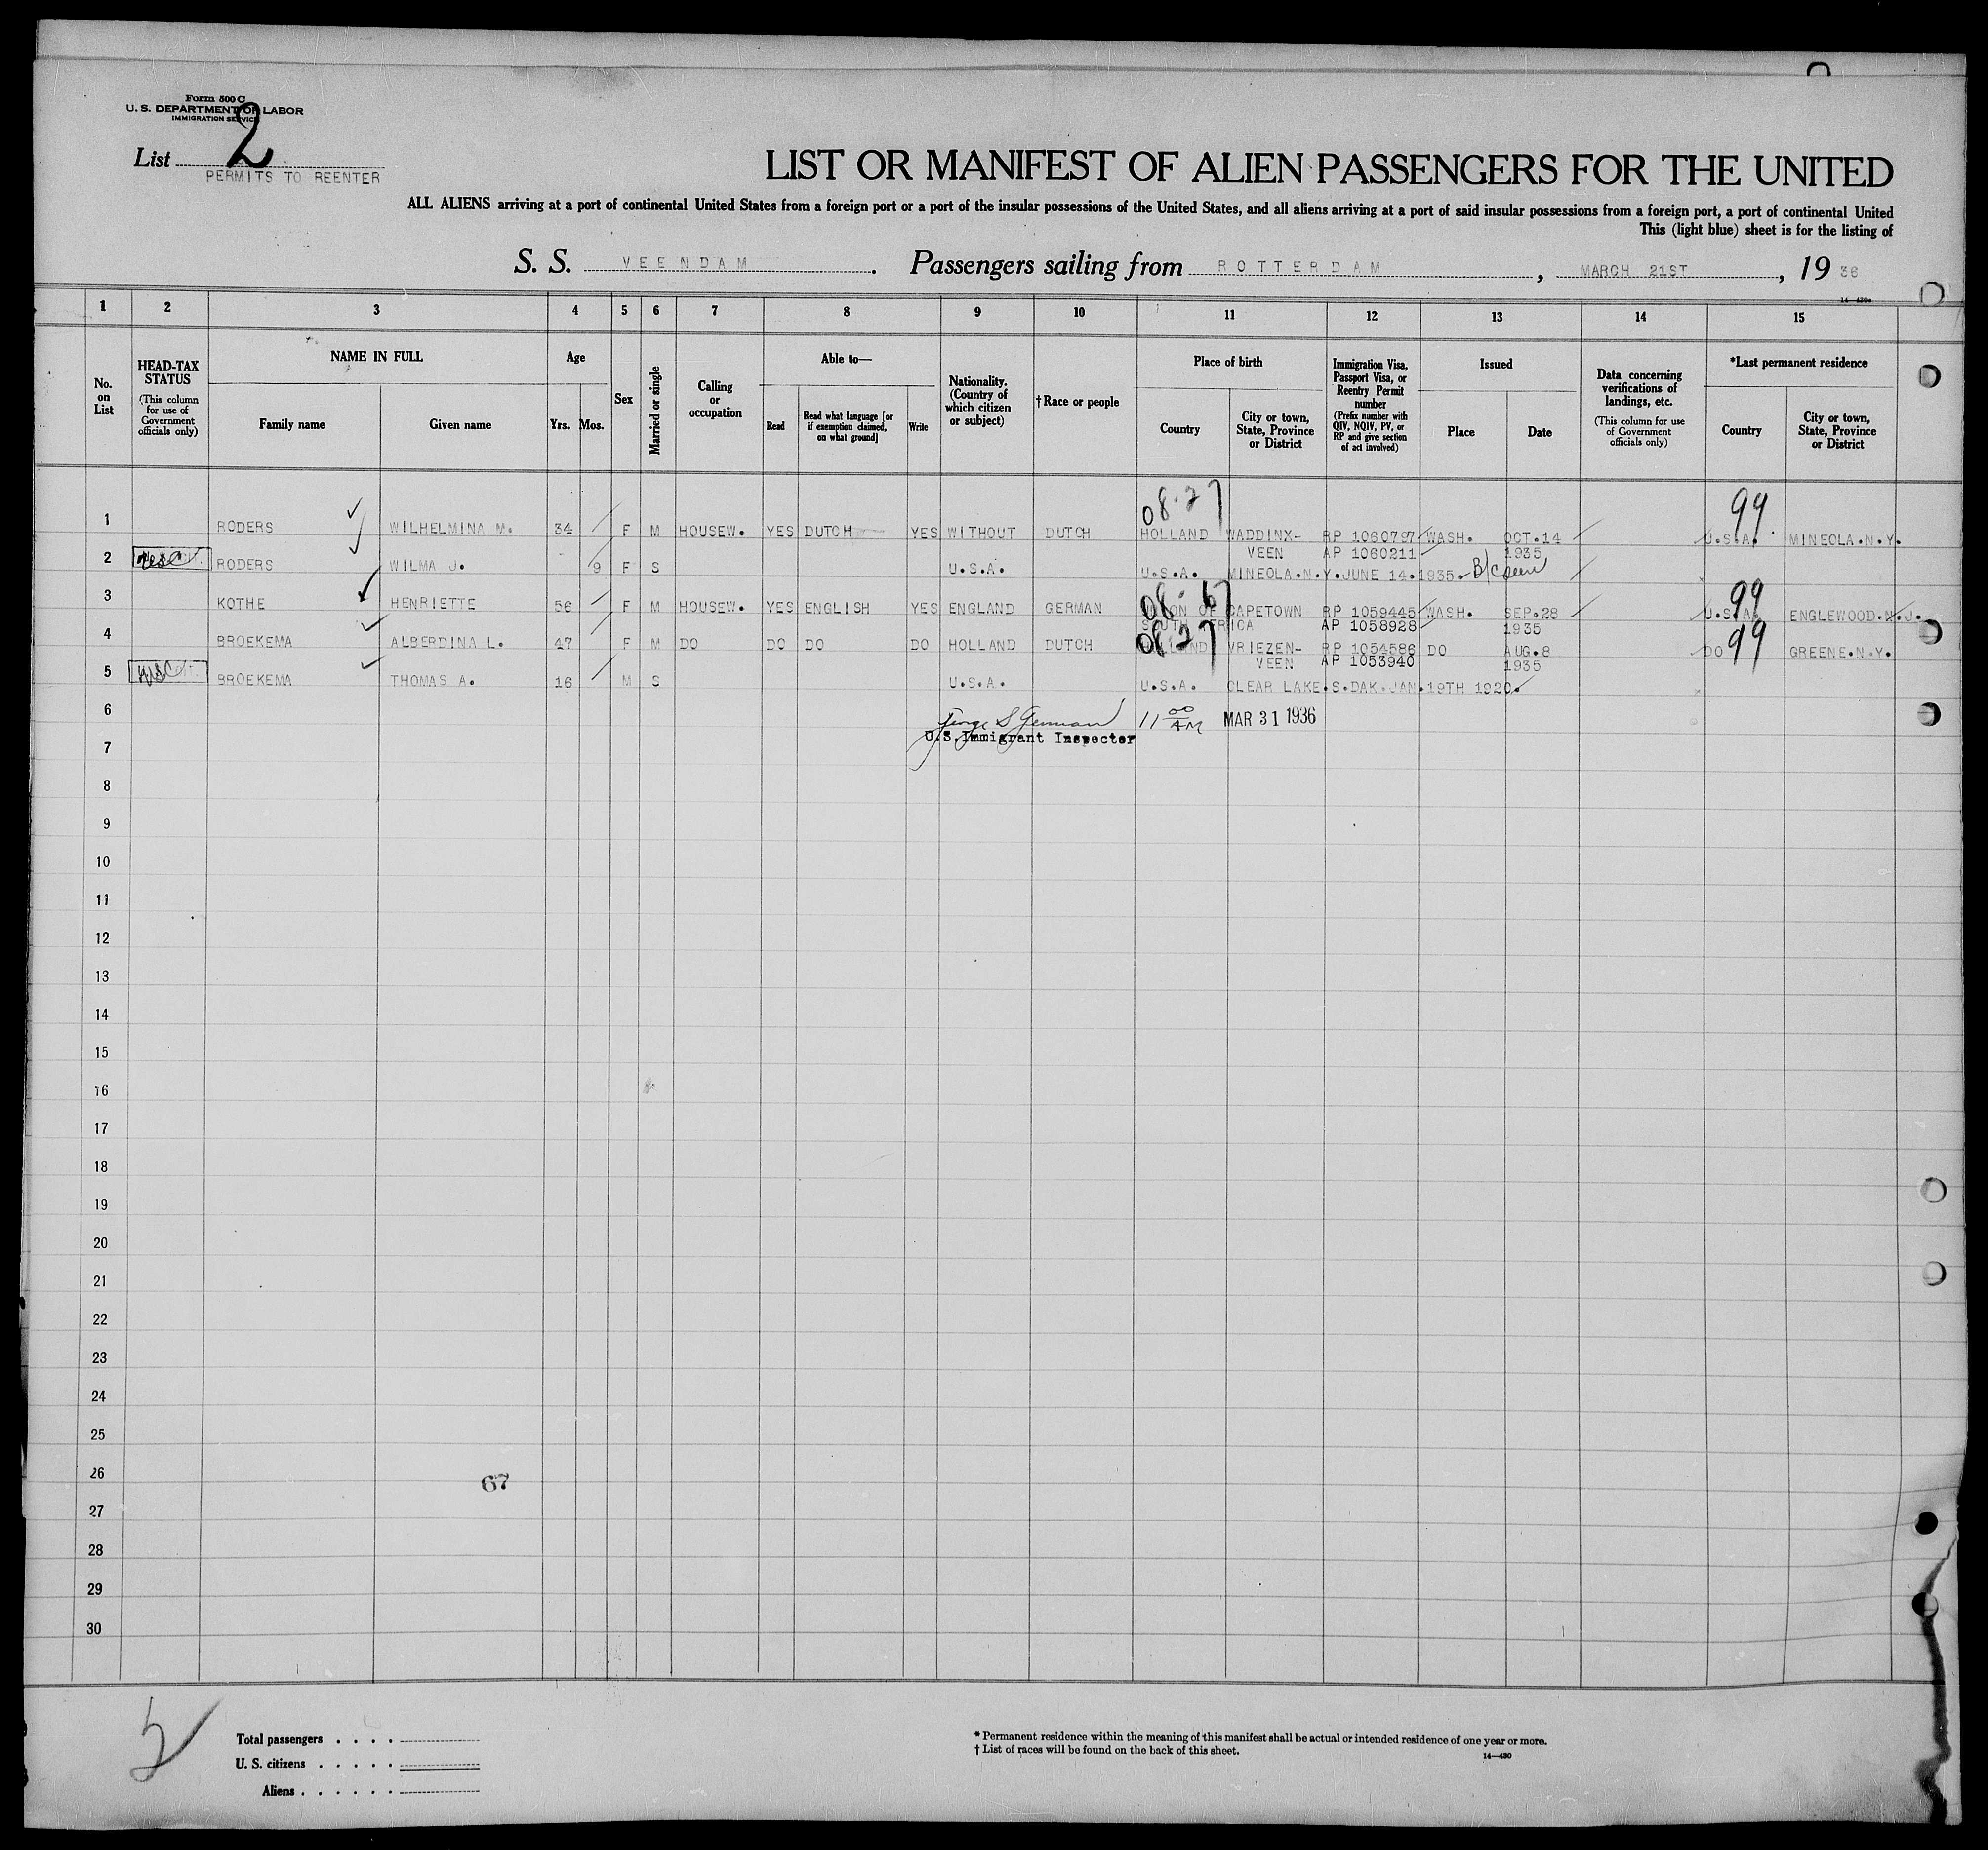 Form 500 C
U. S. DEPARTMENT OF LABOR
IMMIGRATION SERVICE
List 2
PERMITS TO REENTER
LIST OR MANIFEST OF ALIEN PASSENGERS FOR THE UNITED
ALL ALIENS arriving at a port of continental United States from a foreign port or a port of the insular possessions of the United States, and all aliens arriving at a port of said insular possessions from a foreign port, a port of continental United
This (light blue) sheet is for the listing of
S. S. VEENDAM. Passengers sailing from ROTTERDAM, MARCH 21ST, 19 36
14—430a
1 2 3 4 5 6 7 8 9 10 11 12 13 14 15
No. on List
HEAD-TAX STATUS
(This column for use of Government officials only)
NAME IN FULL
Family name Given name
Age
Yrs. Mos.
Sex
Married or single
Calling or occupation
Able to—
Read
Read what language [or if exemption claimed, on what ground]
Write
Nationality. (Country of which citizen or subject)
† Race or people
Place of birth
Country
City or town, State, Province or District
Immigration Visa, Passport Visa, or Reentry Permit number
(Prefix number with QIV, NQIV, PV, or RP and give section of act involved)
Issued
Place Date
Data concerning verifications of landings, etc.
(This column for use of Government officials only)
*Last permanent residence
Country
City or town, State, Province or District
08-27 99
1 RODERS WILHELMINA M. 34 F M HOUSEW. YES DUTCH YES WITHOUT DUTCH HOLLAND WADDINX- RP 1060797 WASH. OCT.14 U.S.A. MINEOLA.N.Y.
VEEN AP 1060211 1935
2 RODERS WILMA J. 9 F S U.S.A. U.S.A. MINEOLA.N.Y.JUNE 14.1935. B/C seen
08-67 99
3 KOTHE HENRIETTE 56 F M HOUSEW. YES ENGLISH YES ENGLAND GERMAN UNION OF CAPETOWN RP 1059445 WASH. SEP.28 U.S.A. ENGLEWOOD.N.J.
SOUTH AFRICA AP 1058928 1935
08-27 99
4 BROEKEMA ALBERDINA L. 47 F M DO DO DO DO HOLLAND DUTCH HOLLAND VRIEZEN- RP 1054586 DO AUG.8 DO GREENE.N.Y.
VEEN AP 1053940 1935
5 USC BROEKEMA THOMAS A. 16 M S U.S.A. U.S.A. CLEAR LAKE.S.DAK.JAN.19TH 1920.
6 11 00 AM MAR 31 1936
U.S. Immigrant Inspector
7
8
9
10
11
12
13
14
15
16
17
18
19
20
21
22
23
24
25
26
67
27
28
29
30
5
Total passengers . . . .
U. S. citizens . . . . .
Aliens . . . . . .
* Permanent residence within the meaning of this manifest shall be actual or intended residence of one year or more.
† List of races will be found on the back of this sheet.
14—430